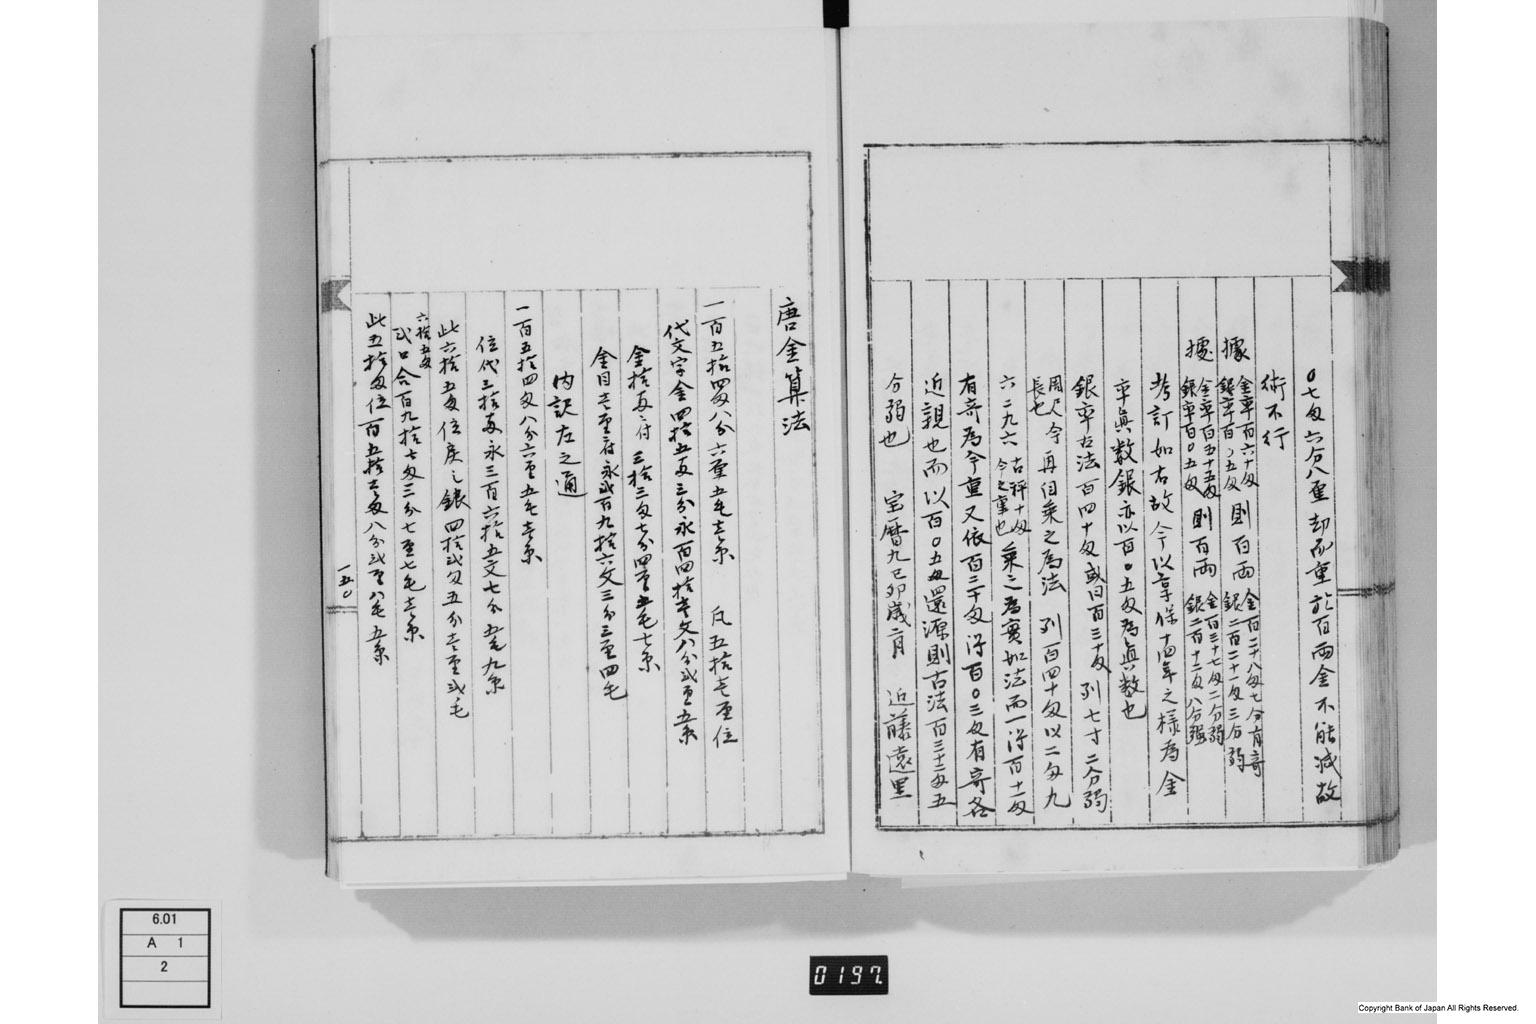 〇七匁六分八重却而重於百両金不能減故
術不行
據金率百六十匁銀率百〇五匁則百両金百二十八匁七分有奇銀二百二十一匁三分弱
據金率百五十五匁銀率百〇五匁則百両金百三十七匁二分弱銀二百十二匁八分強
考訂如右故今以享保十四年之様為金
率真数銀亦以百〇五匁為真数也
銀率古法百四十匁或曰百三十匁列七寸二分弱
周尺今長也再自乗之為法列百四十匁以二匁九
六二九六古秤十匁今之重也乗之為實如法而一得百十匁
有奇為今重又依百三十匁得百〇三匁有奇各
近親也而以百〇五匁還源則古法百三十二匁五
分弱也 宝暦九己卯歳二月 近藤遠里
唐金算法
一百五拾四匁八分六厘五毛壱糸 凡五拾壱匁位
代文字金四拾五両三分永百四拾壱文八分弐厘五糸
金拾両ニ付三拾三匁七分四厘五毛七糸
金目壱匁ニ付永弐百九拾六文三分三厘四毛
内訳左之通
一百五拾四匁八分六厘五毛壱糸
位代三拾両永三百六拾五文七分五毛九糸
此六拾五匁位戻之銀四拾弐匁五分壱厘弐毛
六拾五匁
弐口合百九拾七匁三分七厘七毛壱糸
此五拾匁位一百五拾壱匁八分弐厘八毛五糸
一五〇
6.01
A 1
2
0197
Copyright Bank of Japan All Rights Reserved.